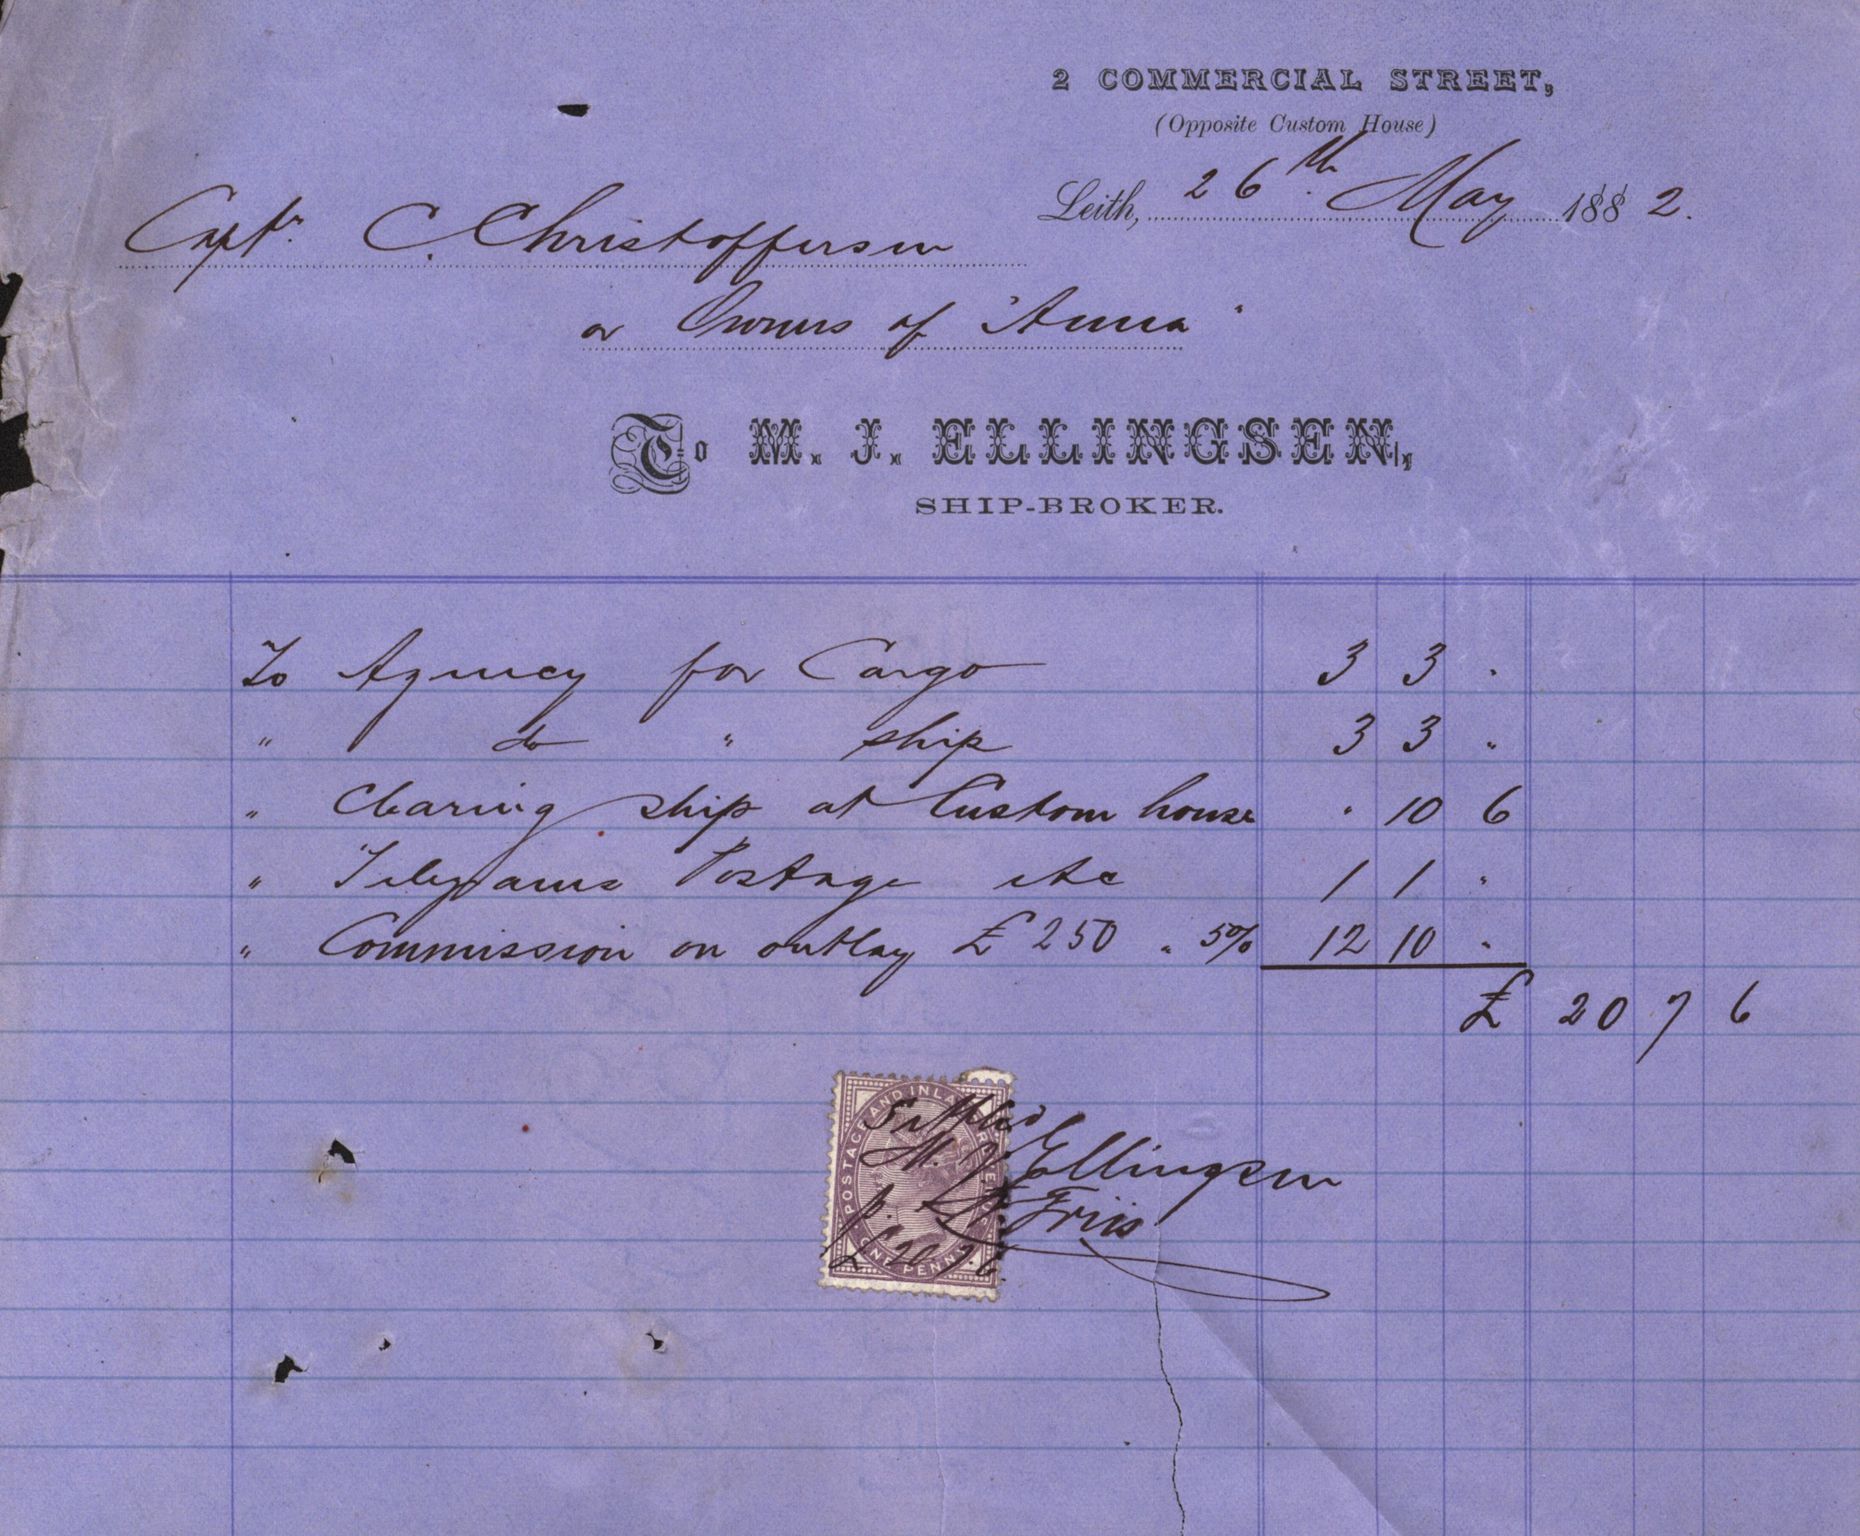 2 COMMERCIAL STREET,
(Opposite Custom House)
Leith, 26th May 1882.
Capt. C. Christoffersen
or Owners of "Anna"
To M. J. ELLINGSEN,
SHIP-BROKER.
To Agency for Cargo 3 3 "
" do " ship 3 3 "
" Clearing ship at Custom house " 10 6
" Telegrams Postage etc 1 1 "
" Commission on outlay £250 " 5% 12 10 "
£ 20 7 6
POSTAGE AND INLAND REVENUE
ONE PENNY
M. J. Ellingsen
Friis
£20.7.6